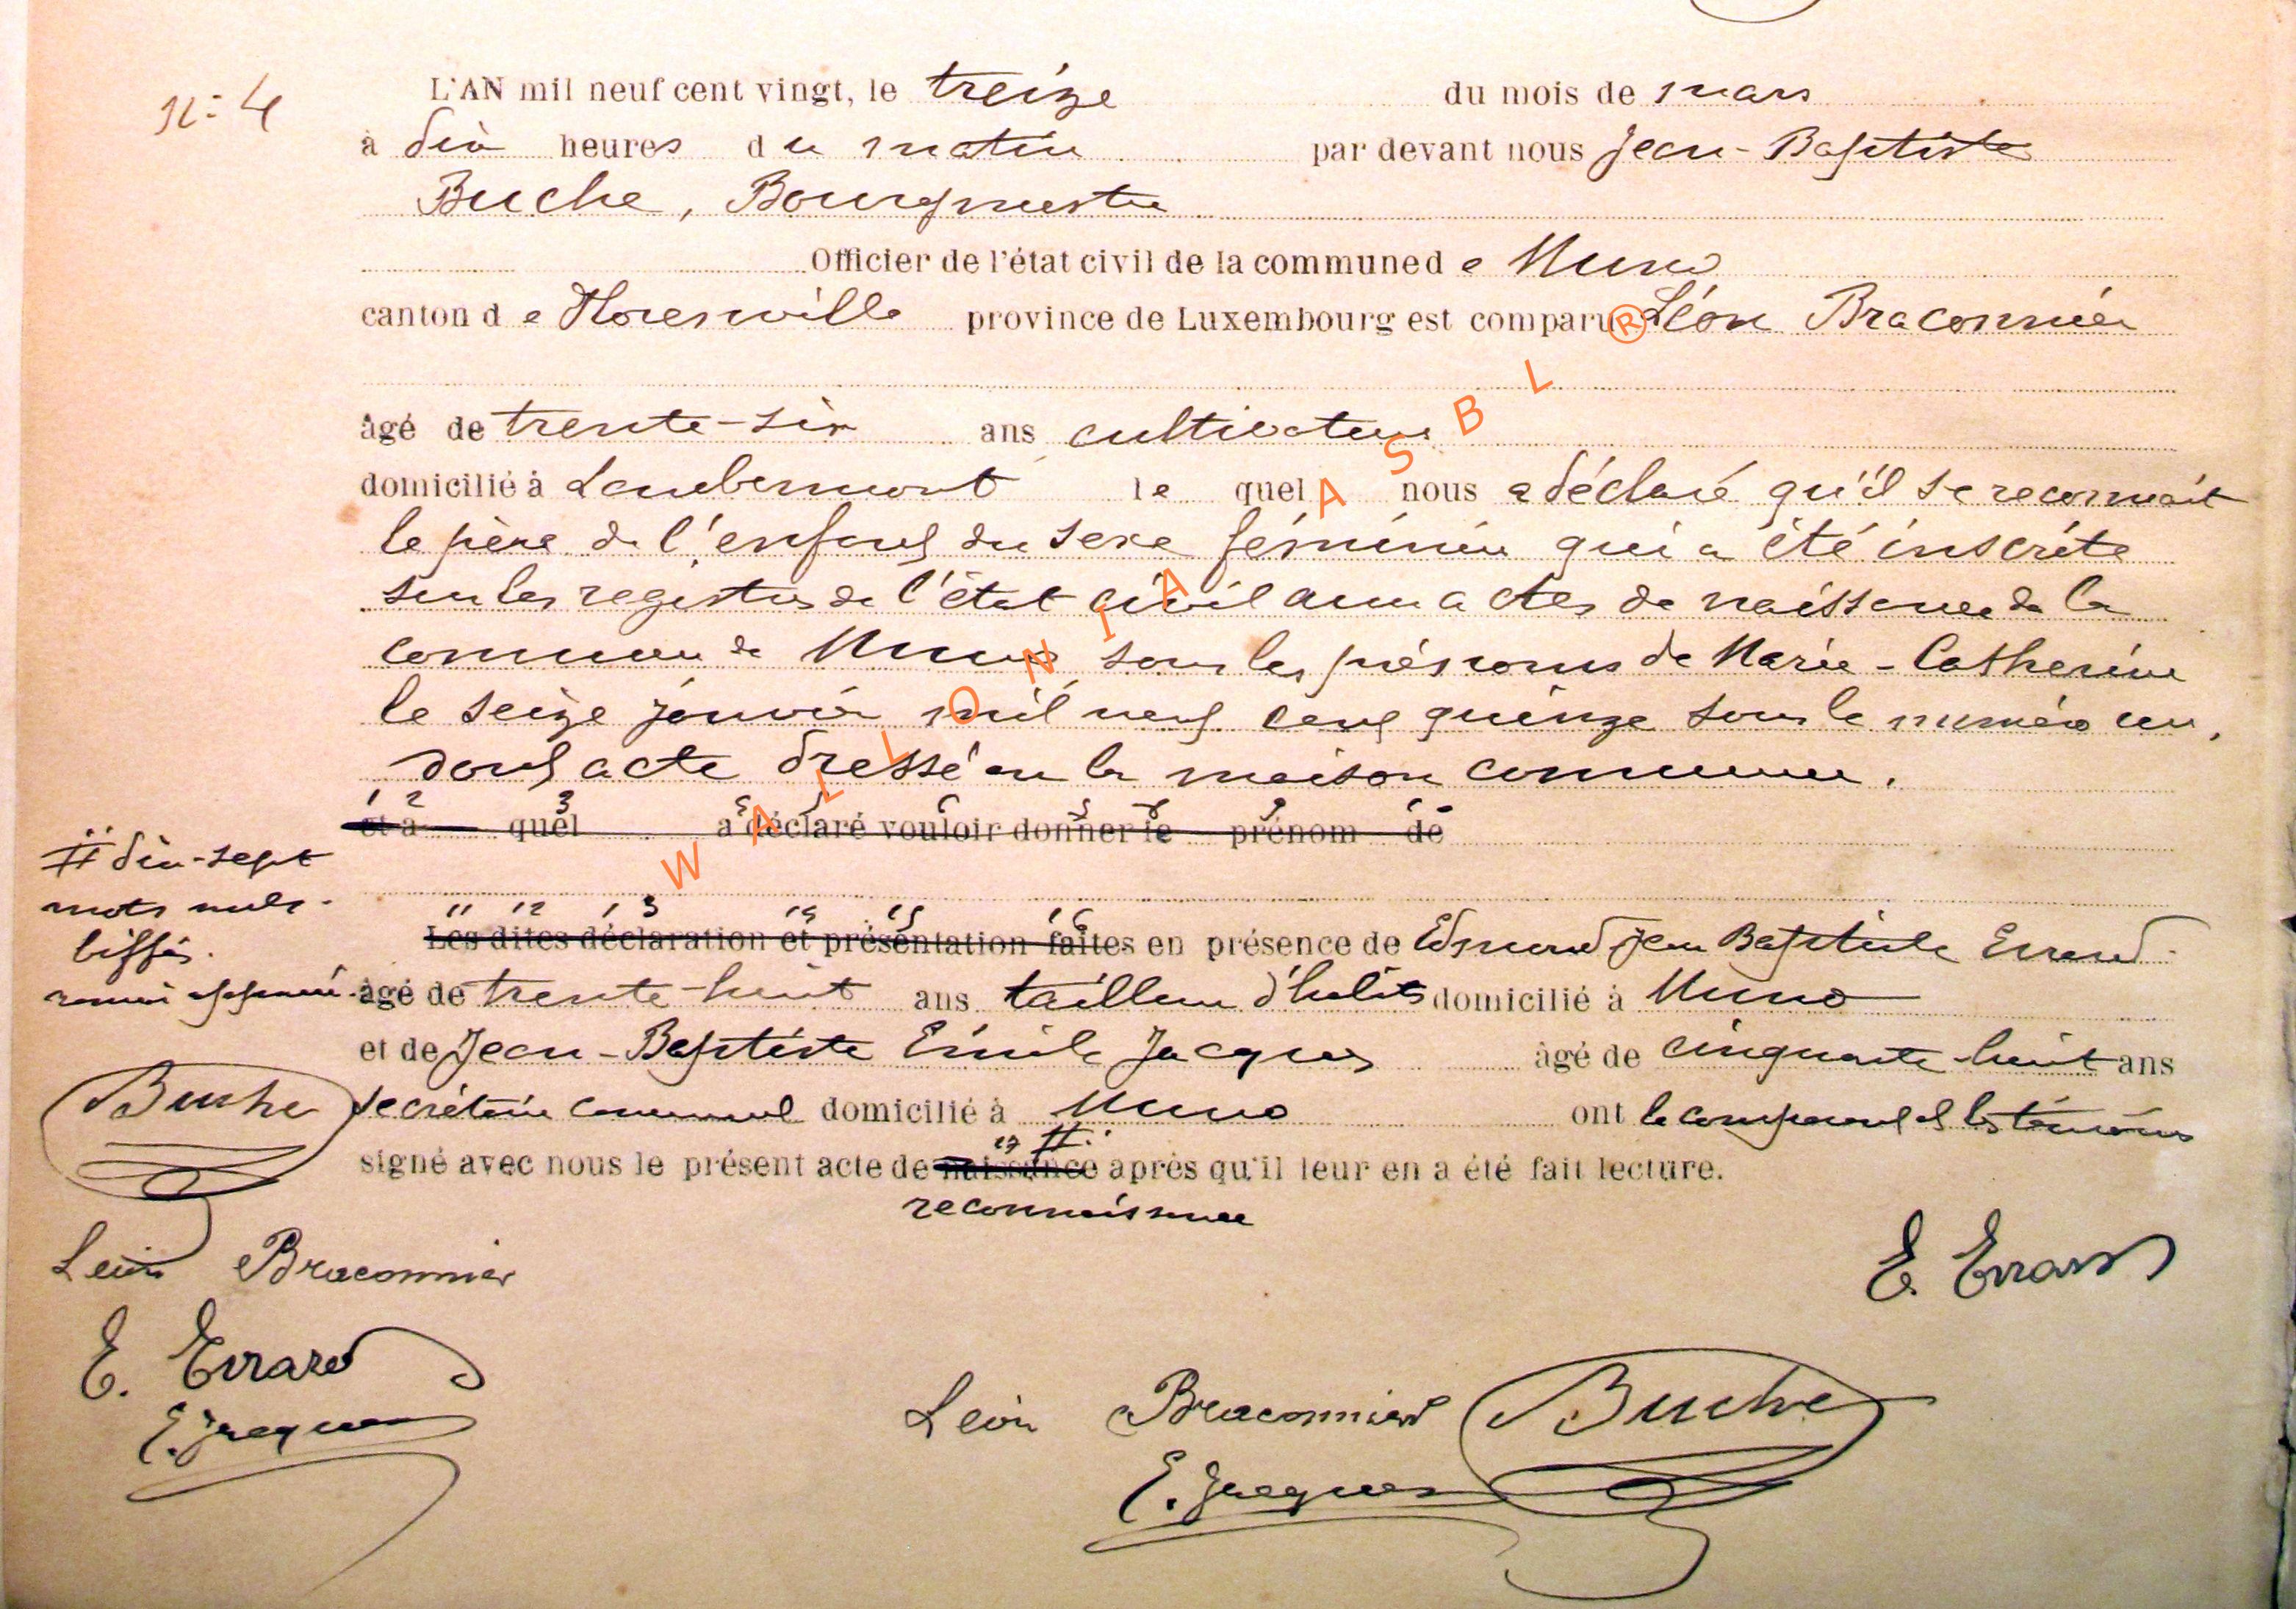 N° 4
L'AN mil neuf cent vingt, le treize du mois de mars
à dix heures du matin par devant nous Jean-Baptiste
Buche, Bourgmestre
Officier de l'état civil de la commune de Muno
canton de Florenville province de Luxembourg est comparu Léon Braconnier
âgé de trente-six ans cultivateur
domicilié à Lambermont lequel nous a déclaré qu'il se reconnait
le père de l'enfant du sexe féminin qui a été inscrite
sur les registres de l'état civil aux actes de naissance de la
commune de Muno sous les prénoms de Marie-Catherine
le seize janvier mil neuf cent quinze sous le numéro un,
dont acte dressé en la maison commune.
1 2 3 4 5 6 7 8 9 10
et à quel a déclaré vouloir donner le prénom de
11 12 13 14 15 16
Les dites déclaration et présentation faites en présence de Edmond Jean Baptiste Errard
âgé de trente-huit ans tailleur d'habits domicilié à Muno
et de Jean-Baptiste Emile Jacques âgé de cinquante-huit ans
secrétaire communal domicilié à Muno ont le comparant et les témoins
17 #
signé avec nous le présent acte de naissance après qu'il leur en a été fait lecture.
reconnaissance
# dix-sept
mots nuls
biffés.
renvoi approuvé
Buche
Léon Braconnier
E. Errard
E. Jacques
E. Errard
Léon Braconnier Buche
E. Jacques
WALLONIA ASBL ®